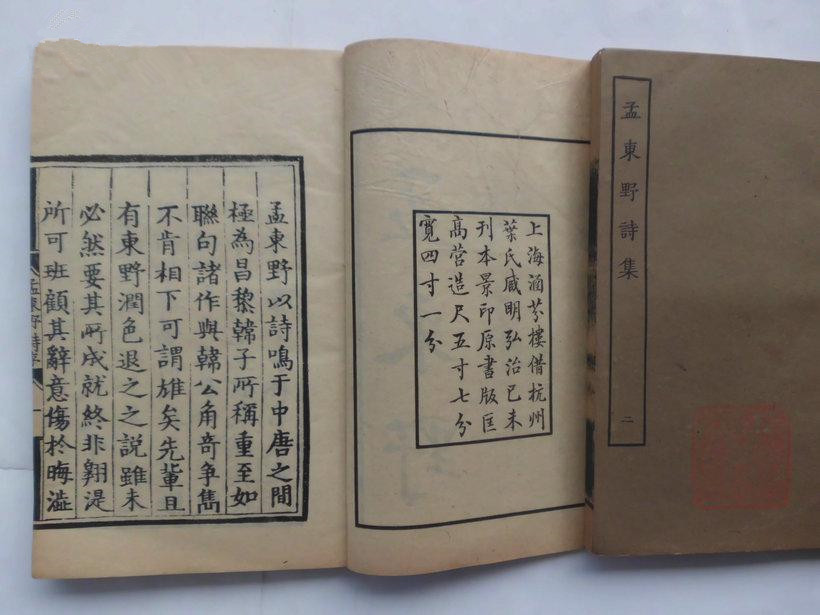 孟東野詩集
二
上海涵芬樓借杭州
葉氏臧明弘治己未
刊本景印原書版匡
高營造尺五寸七分
寬四寸一分
孟東野以詩鳴于中唐之間
極為昌黎韓子所稱重至如
聯句諸作與韓公角奇爭雋
不肯相下可謂雄矣先輩且
有東野潤色退之之說雖未
必然要其所成就終非翱湜
所可班顧其辭意傷於晦澁
孟東野詩序